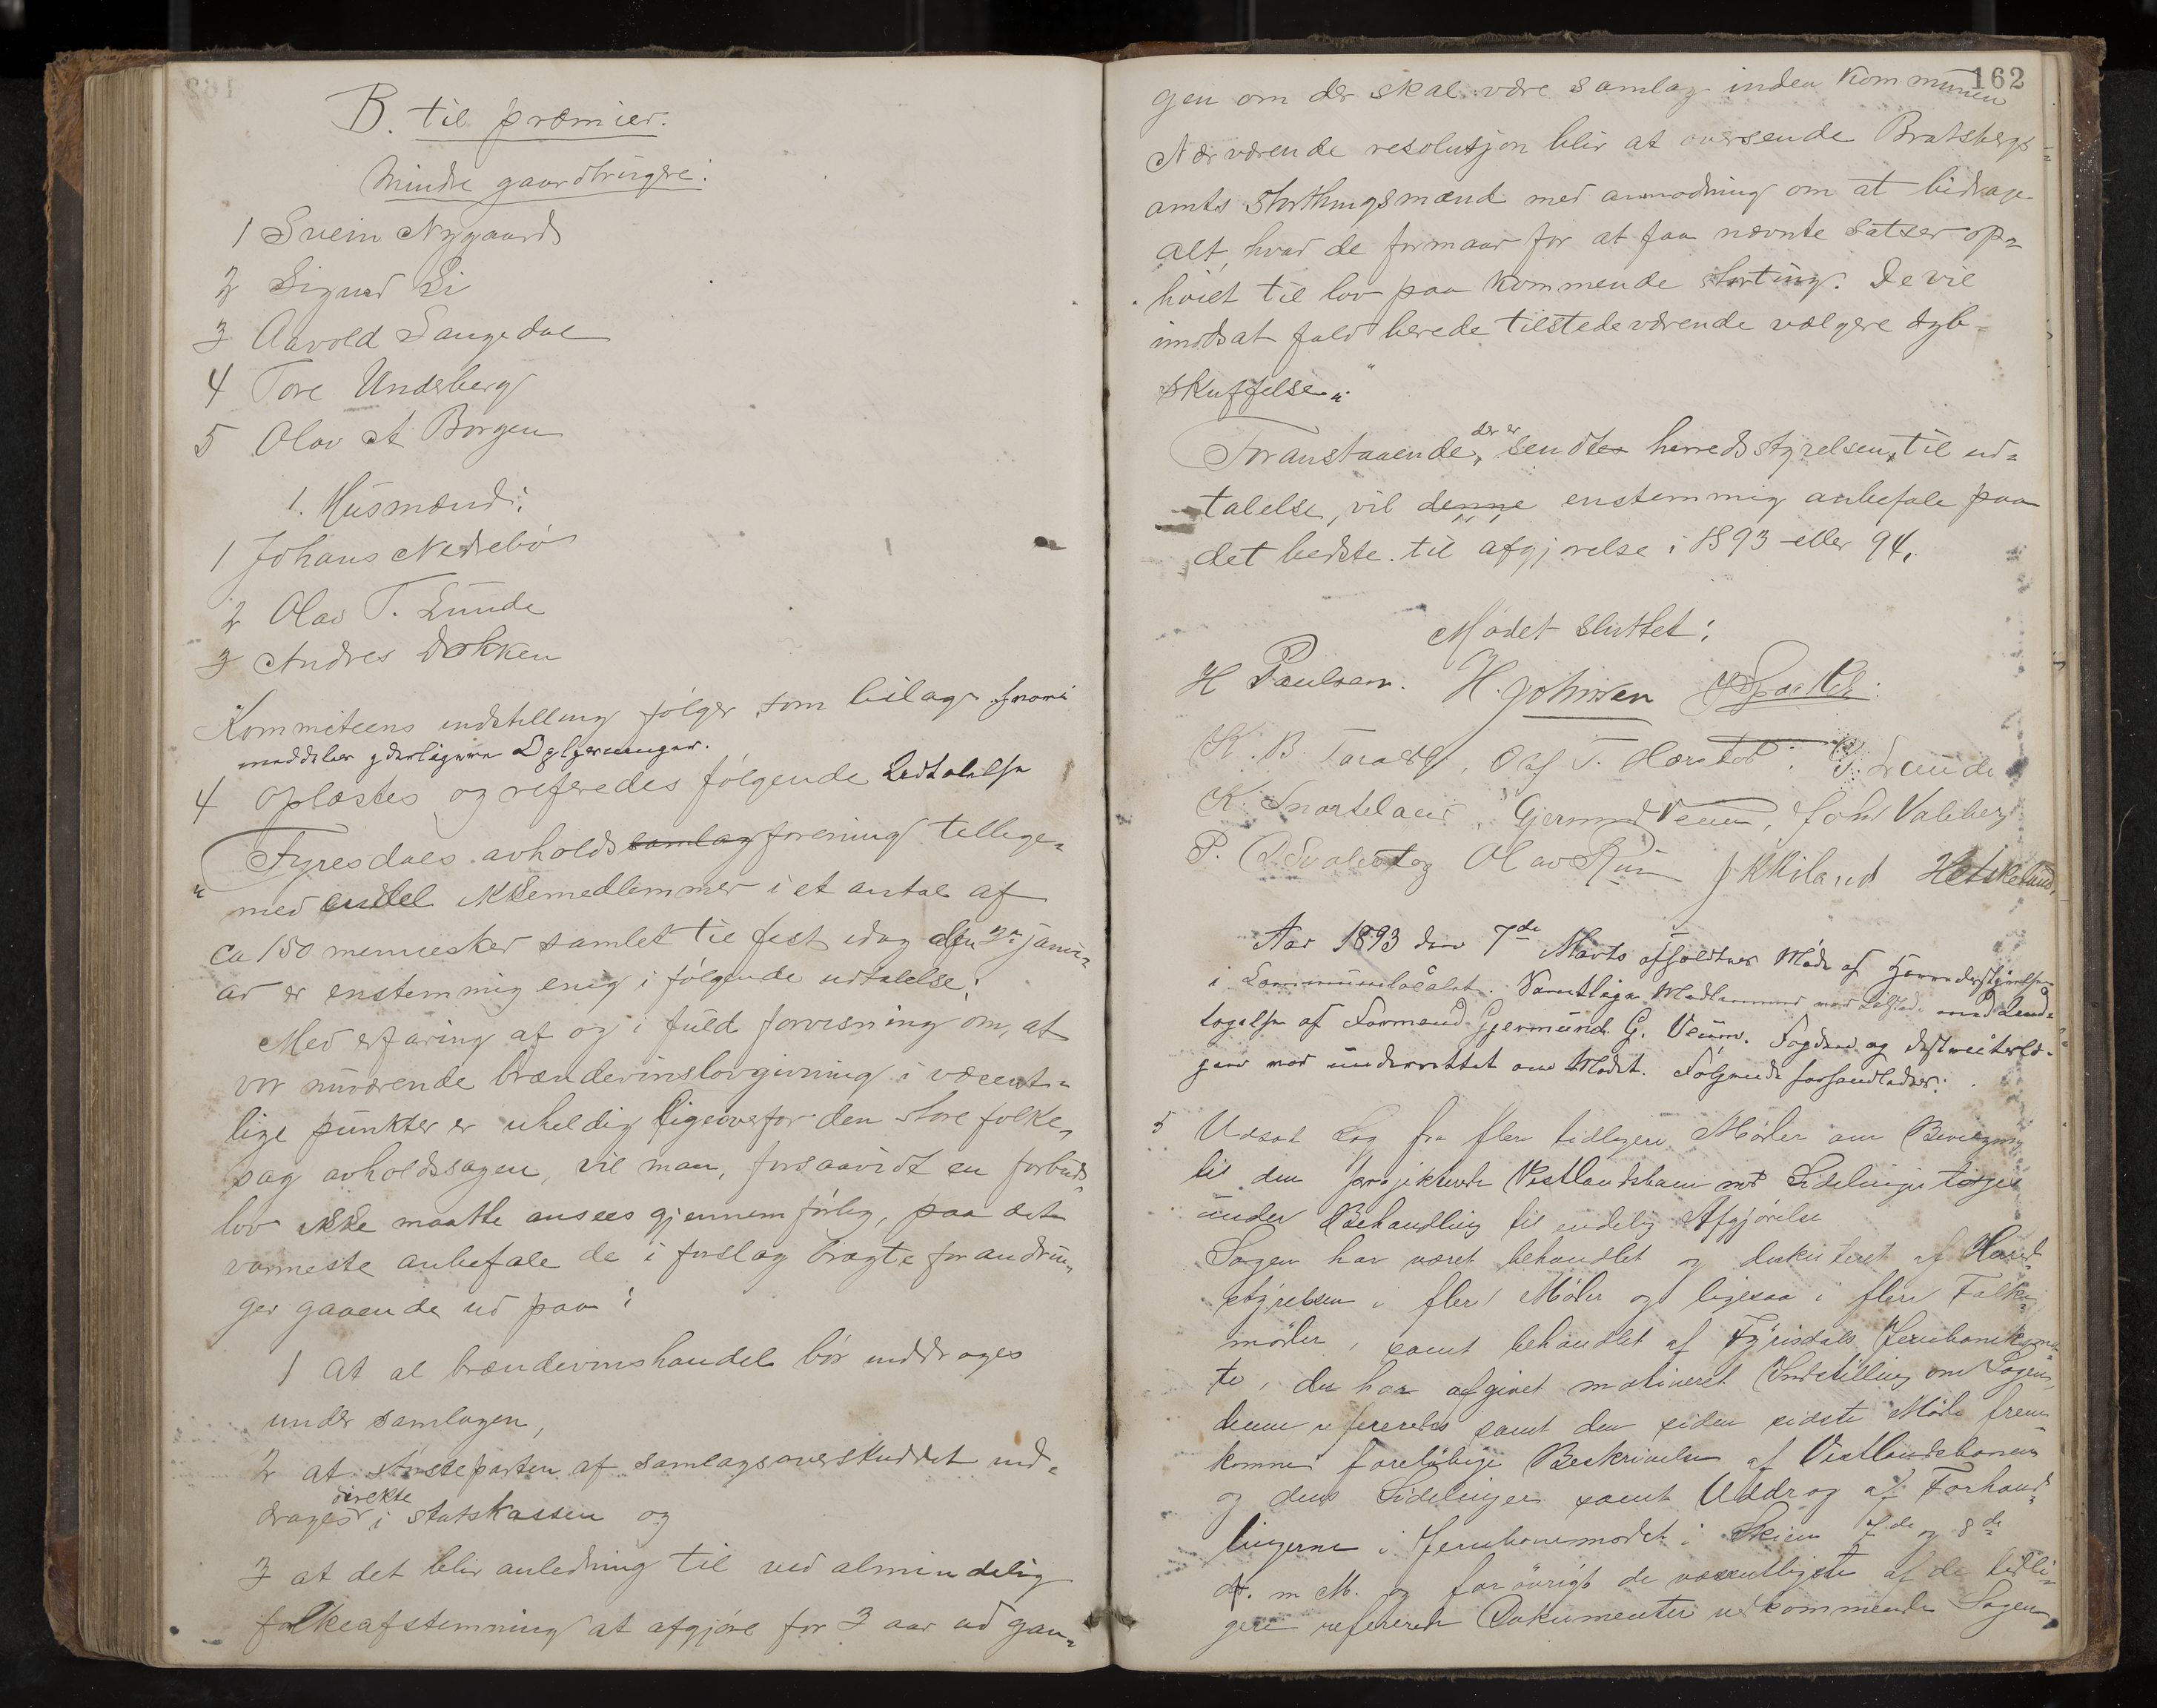 B. til præmier.
Mindre gaardbrugere:
1 Svein Nygaard
2 Sigurd Li
3 Aavold Laugedal
4 Tore Undeberg
5 Olav A Borgen
1. Husmænd:
1 Johans Nedrebö
2 Olav T. Lunde
3 Andres Dokken
Kommiteens indstilling følger som bilag
meddeler yderligere Oplysninger.
4 Oplæstes og referedes følgende Udtalelse
Fyresdals avholdssamlagforening tillige-
" med endel ikkemedlemmer i et antal af
ca 150 mennesker samlet til fest idag den 2n janu-
ar er enstemmig enig i følgende udtalelse:
Med erfaring af og i fuld forvisning om, at
vor nuværende brændevinslovgivning i væsent-
lige punkter er uheldig ligeoverfor den store folke-
sag avholdssagen, vil man, forsaavidt en forbuds-
lov ikke maatte ansees gjennemførlig, paa det
varmeste anbefale de i forslag bragte forandrin-
ger gaaende ud paa:
1 At al brændevinshandel bör inddrages
under samlagen,
2 at störsteparten af samlagsoverskuddet ind-
direkte
drages i statskassen og
3 at det blir anledning til ved almindelig
folkeafstemning at afgjöre for 3 aar ad gan-
162
gen om der skal være samlag inden kommunen
Nærværende resolutjon blir at oversende Bratsbergs
amts storthingsmænd med anmodning om at bidrage
alt, hvad de formaar for at faa nævnte satser op-
höiet til lov paa kommende storting. De vil
imodsat fald berede tilstedeværende vælgere dyb
skuffelse."
der er
Foranstaaende, sendtes herredsstyrelsen, til ud-
talelse, vil denne enstemmig anbefale paa
det bedste til afgjørelse i 1893 eller 94.
Mødet sluttet:
H Paulsen. H. Johnsen
K. B. Taraldl. Olaf T. T. Lunde
K. Snarteland, Gjermund Veum, John Valeberg
P. Olav Rui J K Kiland
Aar 1893 den 7de Marts afholdtes Møde af Herredsstyrelsen
i Kommunelocalet. Samtlige Medlemmer var tilsted med Und-
tagelse af Formand Gjermund G. Veum. Fogden og distriktslæ-
gen var underrettet om Mødet. Følgende forhandledes:
5 Udsat Sag fra flere tidligere Møder om Bevilgning
til den projekterede Vestlandsbane med Sidelinjer toges
under Behandling til endelig Afgjörelse
Sagen har været behandlet og diskuteret af Herred-
styrelsen i flere Möder og ligesaa i flere Folke-
möder, samt behandlet af Fyrisdals Jernbanekomi-
te, der har afgivet motiveret Indstilling om Sagen,
denne refereredes samt den siden sidste Möde frem
komne foreløbige Beskrivelse af Vestlandsbanen
og dens Sidelinjer samt Uddrag af Forhand-
lingerne i Jernbanemödet i Skien 7de og 8de
d. m M. og forövrigt de væsentligste af de tidli-
gere refererede Dokumenter vedkommende Sagen